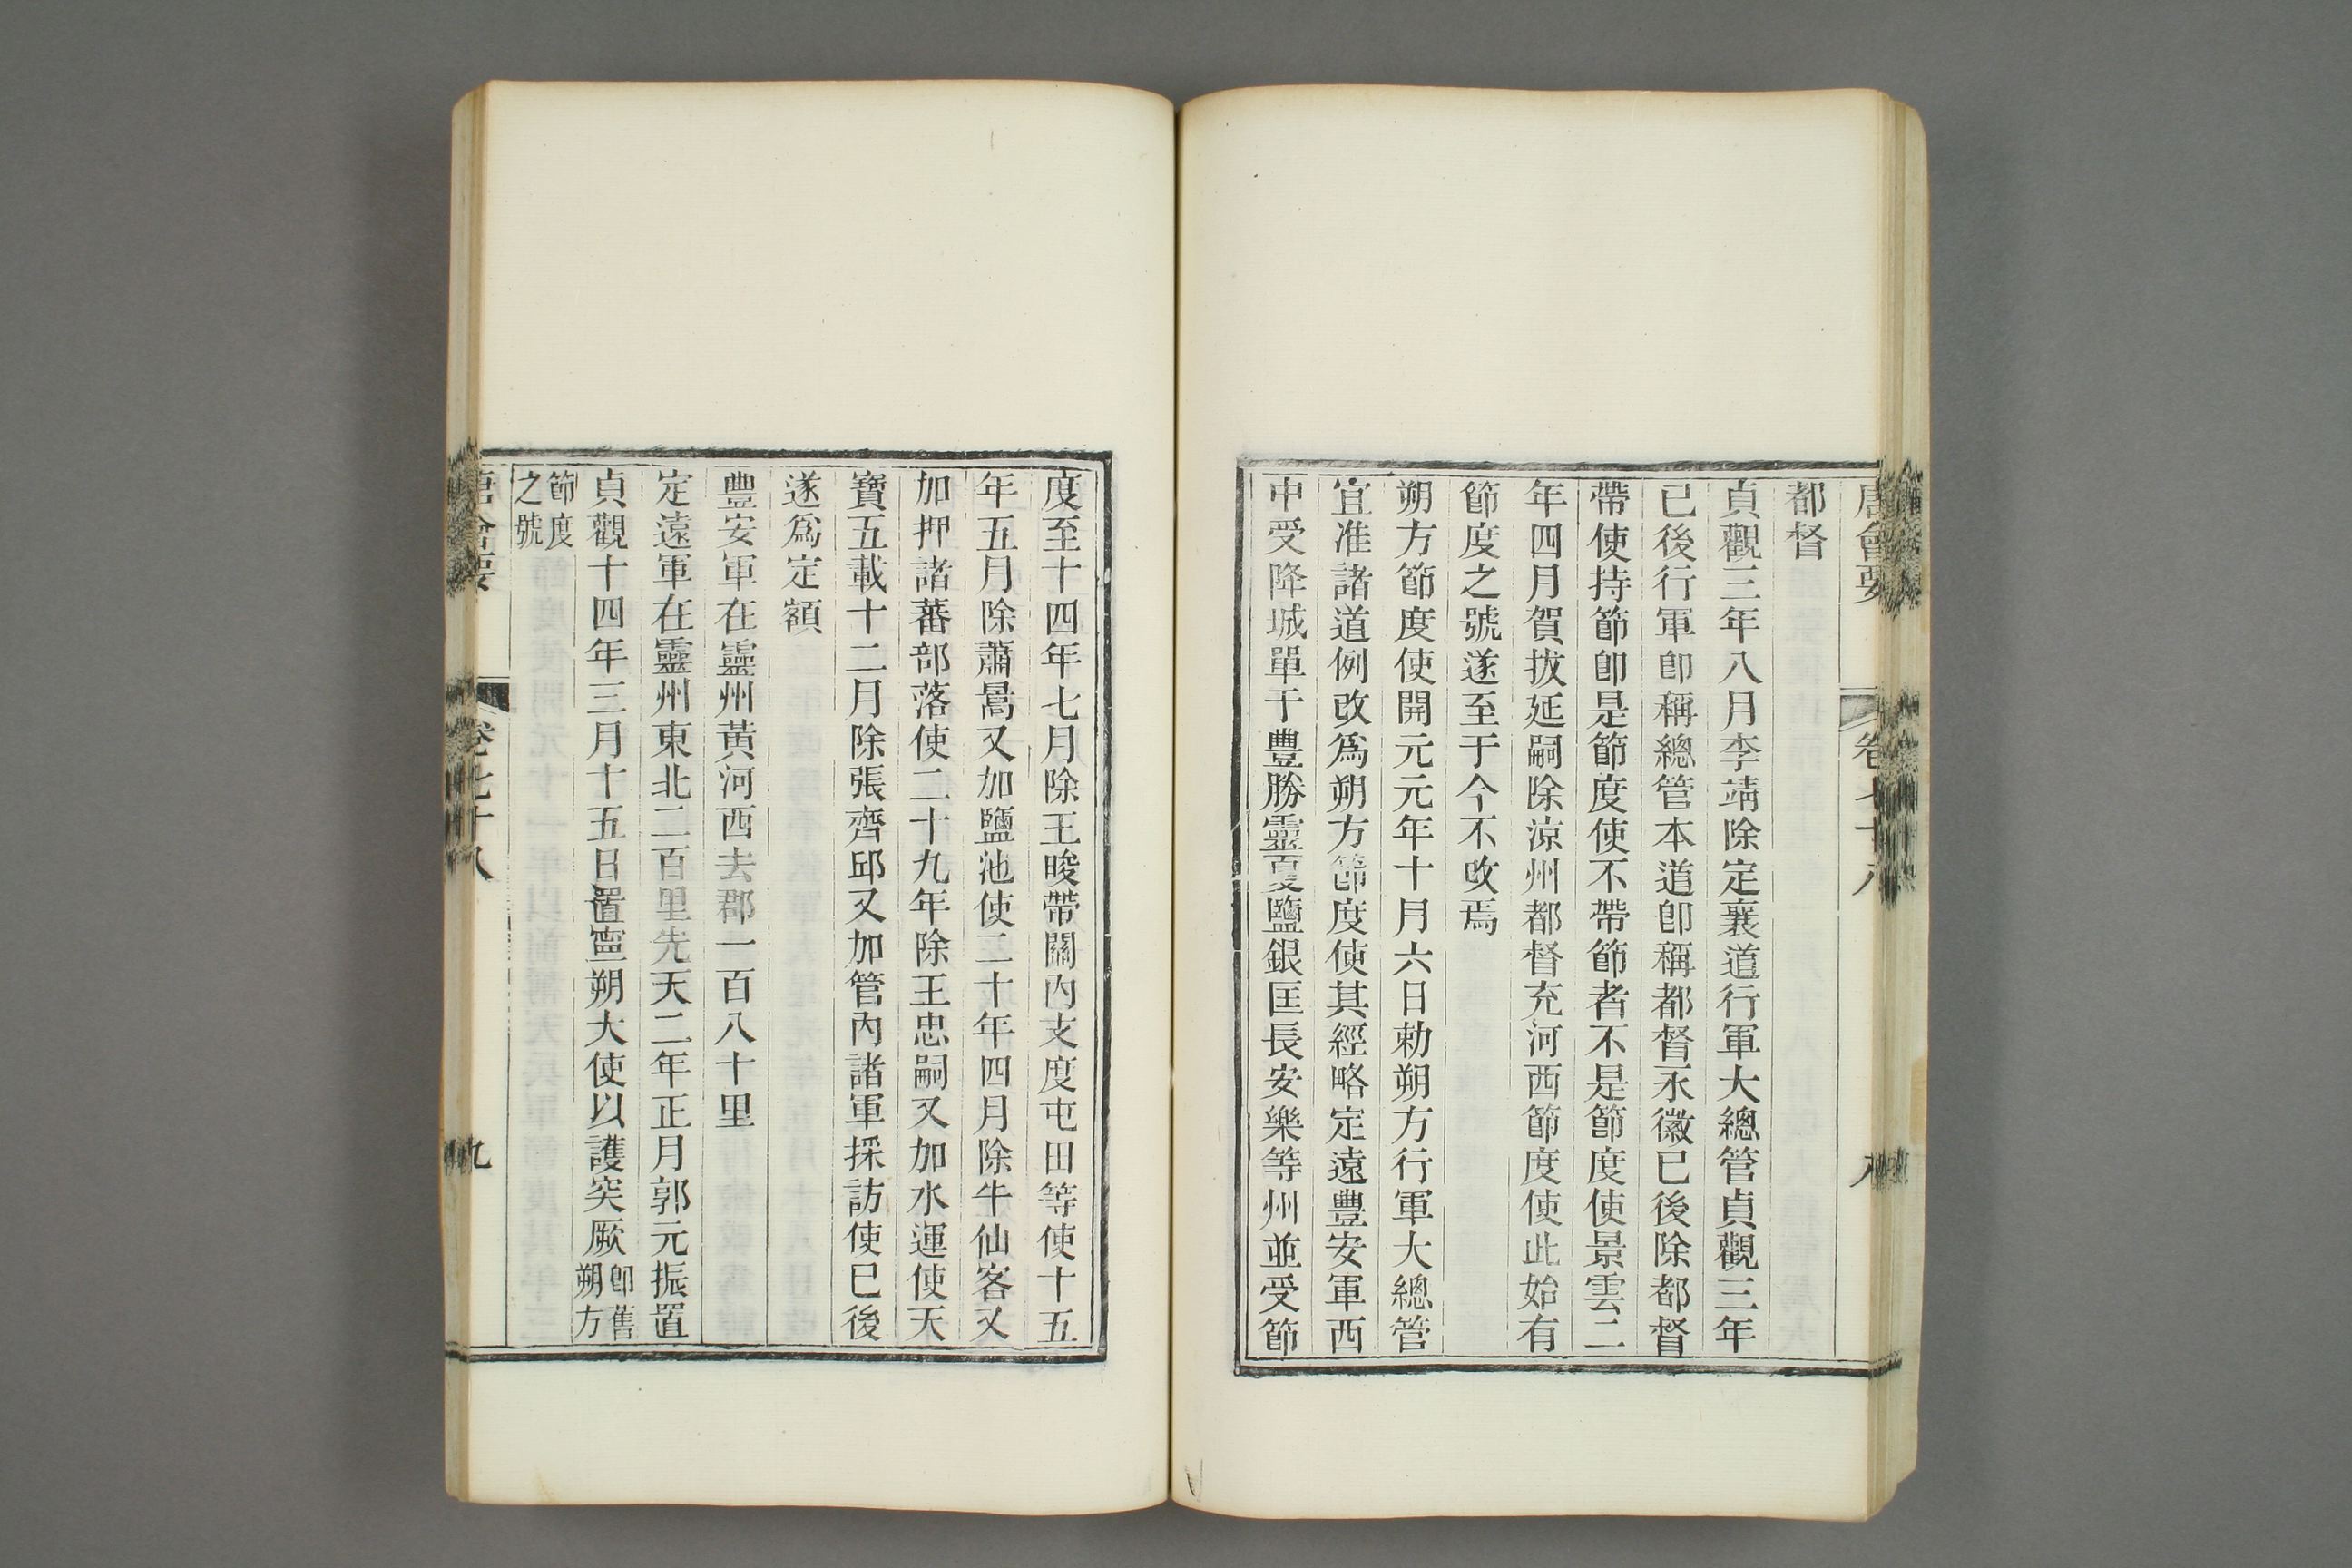 唐會要 卷七十八 八
都督
貞觀三年八月李靖除定襄道行軍大總管貞觀三年
已後行軍卽稱總管本道卽稱都督永徽已後除都督
帶使持節卽是節度使不帶節者不是節度使景雲二
年四月賀拔延嗣除涼州都督充河西節度使此始有
節度之號遂至于今不改焉
朔方節度使開元元年十月六日勅朔方行軍大總管
宜准諸道例改爲朔方節度使其經略定遠豐安軍西
中受降城單于豐勝靈夏鹽銀匡長安樂等州並受節
度至十四年七月除王晙帶關內支度屯田等使十五
年五月除蕭嵩又加鹽池使二十年四月除牛仙客又
加押諸蕃部落使二十九年除王忠嗣又加水運使天
寶五載十二月除張齊邱又加管內諸軍採訪使已後
遂爲定額
豐安軍在靈州黃河西去郡一百八十里
定遠軍在靈州東北二百里先天二年正月郭元振置
貞觀十四年三月十五日置寧朔大使以護突厥卽舊朔方
節度之號
唐會要 卷七十八 九